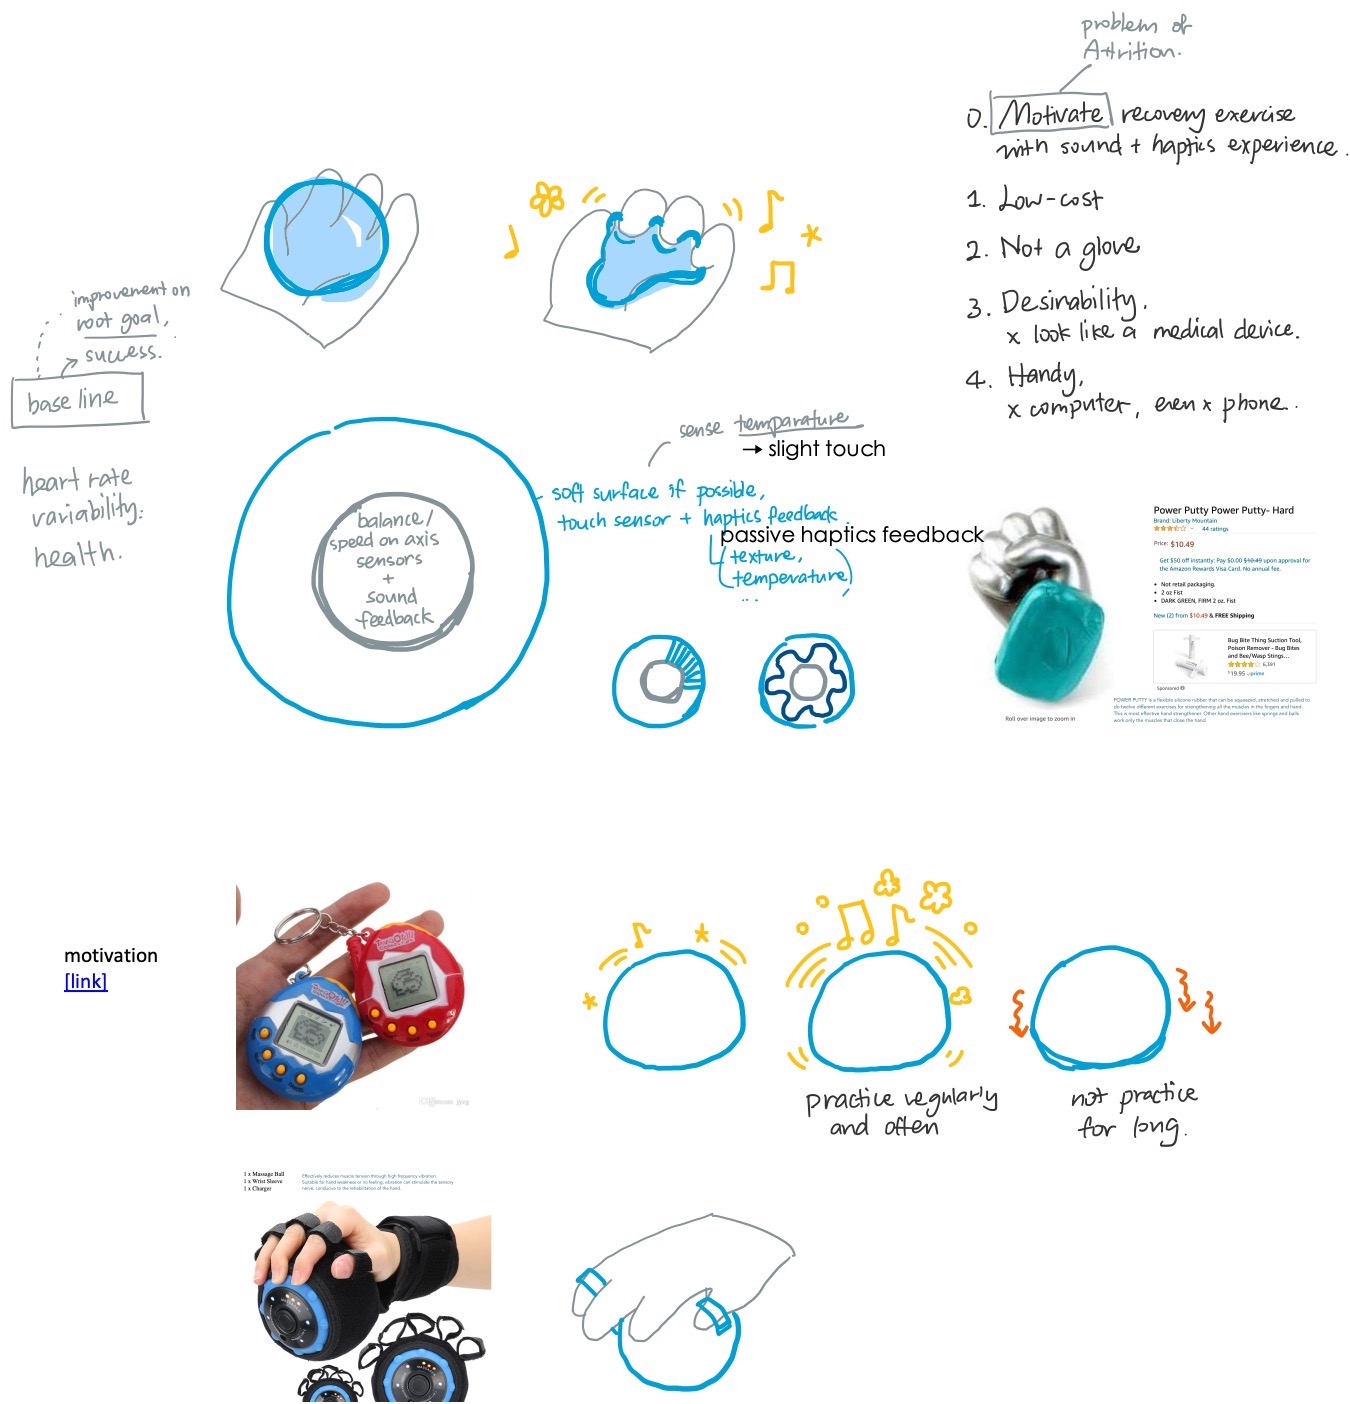 problem of
Attrition.
0. Motivate recovery exercise
with sound + haptics experience.
1. Low-cost
2. Not a glove
3. Desirability.
x look like a medical device.
4. Handy,
x computer, even x phone..
improvement on
root goal,
success.
base line
heart rate
variability:
health.
balance/
speed on axis
sensors
+
sound
feedback
sense temparature
→ slight touch
soft surface if possible,
touch sensor + haptics feedback.
passive haptics feedback
texture,
temperature
...
Power Putty Power Putty- Hard
Brand: Liberty Mountain
44 ratings
Price: $10.49
Get $50 off instantly: Pay $0.00 $10.49 upon approval for
the Amazon Rewards Visa Card. No annual fee.
• Not retail packaging.
• 2 oz Fist
• DARK GREEN, FIRM 2 oz. Fist
New (2) from $10.49 & FREE Shipping
Bug Bite Thing Suction Tool,
Poison Remover - Bug Bites
and Bee/Wasp Stings...
6,391
$19.95 prime
Sponsored
Roll over image to zoom in
POWER PUTTY is a flexible silicone rubber that can be squeezed, stretched and pulled to
do twelve different exercises for strengthening all the muscles in the fingers and hand.
This is most effective hand strengthener. Other hand exercisers like springs and balls
work only the muscles that close the hand.
motivation
[link]
practice regularly
and often
not practice
for long.
1 x Massage Ball
1 x Wrist Sleeve
1 x Charger
Effectively reduces muscle tension through high frequency vibration.
Suitable for hand weakness or no feeling, vibration can stimulate the sensory
nerve, conducive to the rehabilitation of the hand.